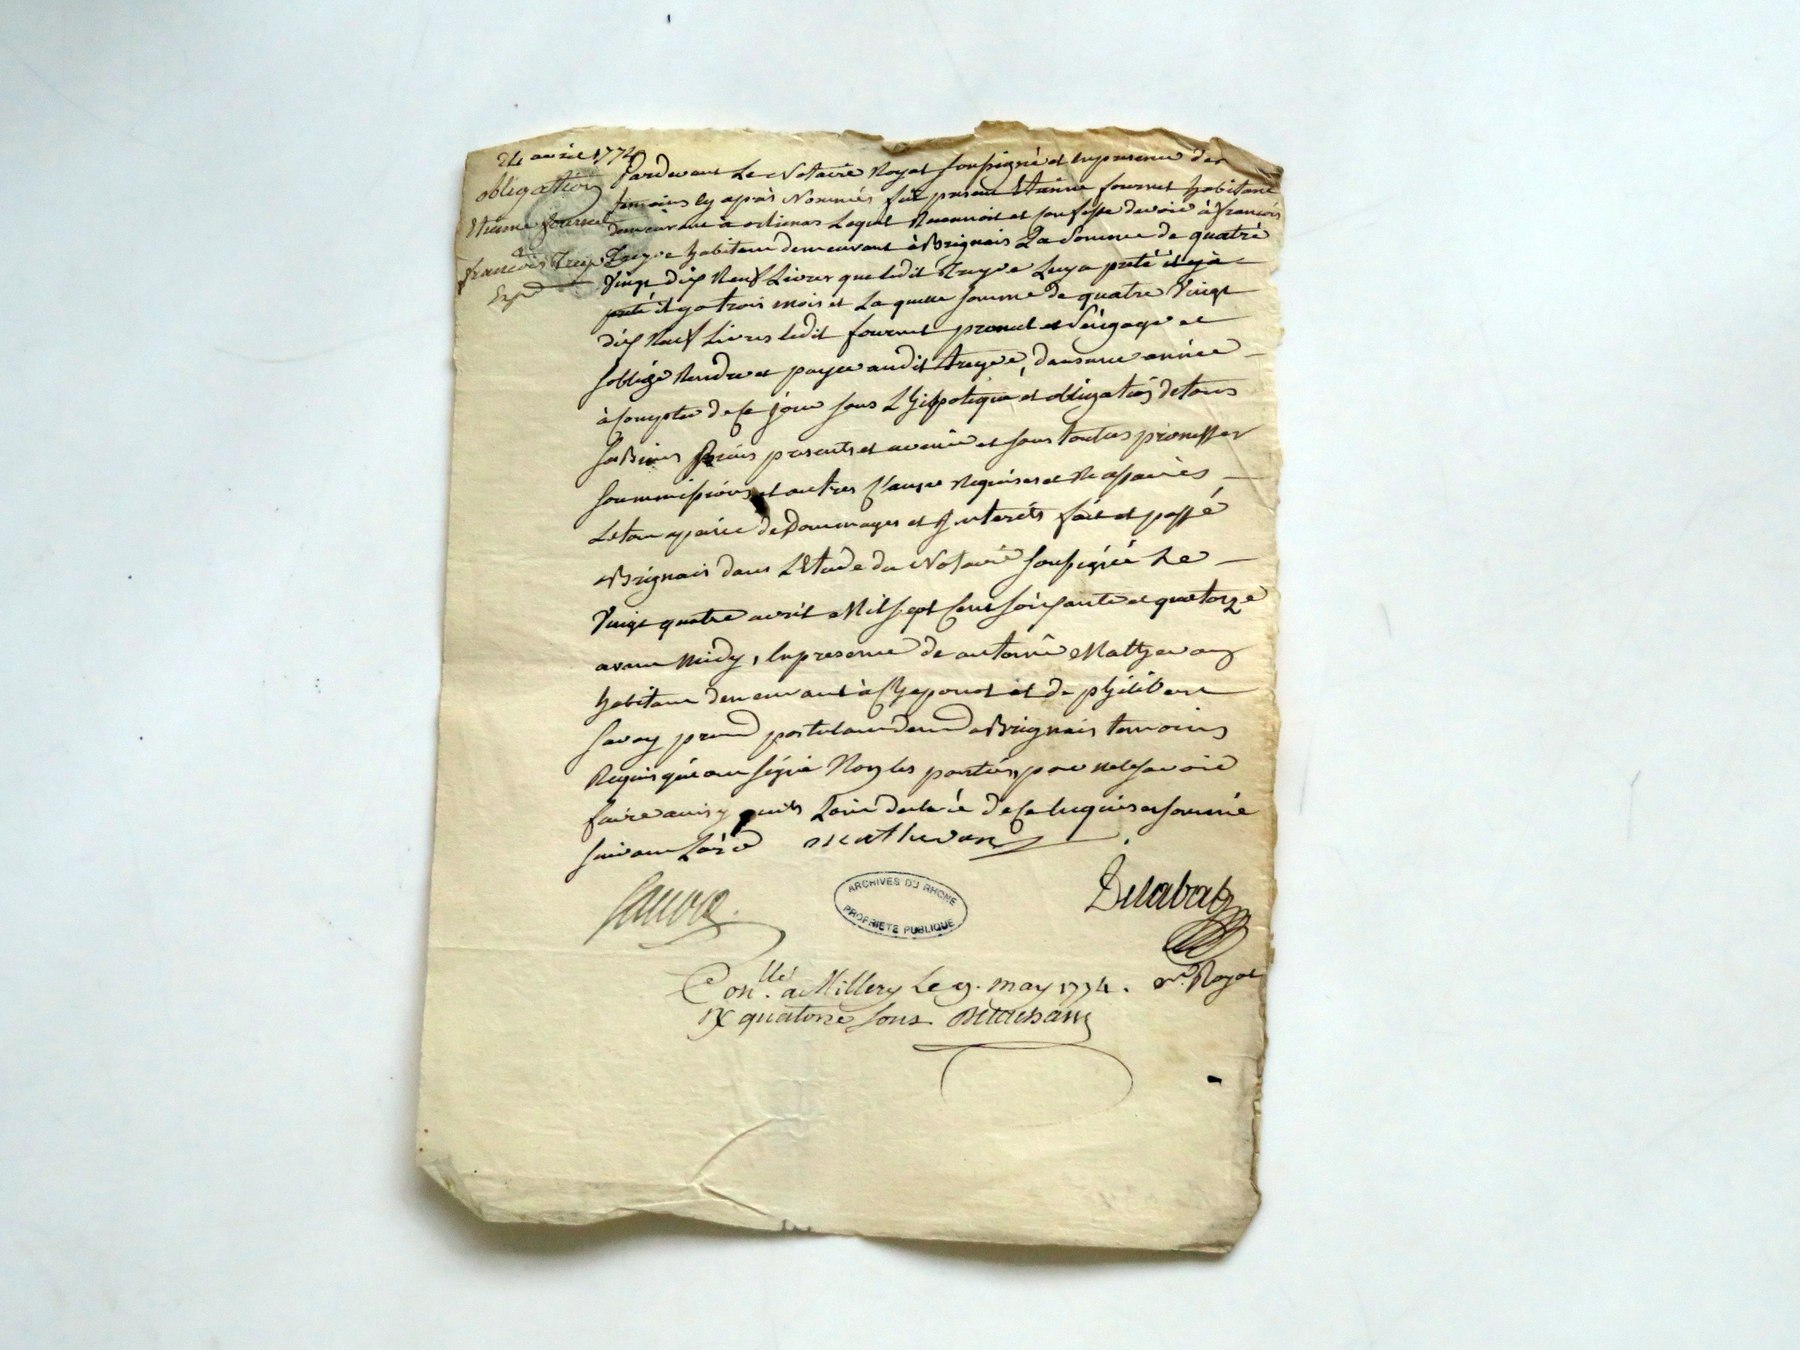 24 avril 1774
obligation
Etienne fournet
à
françois Treyve
Exp.d
Pardevant Le Notaire Royal soussigné et en presence des
temoins cy après Nommés fut present Etienne fournet habitant
demeurant a orlienas Lequel Reconnoit et confesse devoir à françois
Treyve habitant demeurant à Brignais La Somme de quatre
Vingt dix Neuf Livres que ledit Treyve Luy a preté il y a
preté il y a trois mois et La quelle somme de quatre Vingt
dix Neuf Livres ledit fournet promet et s'engage et
s'oblige Rendre et payer audit treyve, dans une année
à Compter de Ce jour sous L'hippotéque et obligation de tous
ses Biens presents et avenir et sous toutes promesses
soummissions et autres Clauses Requises et
et de Dommages et Interéts fait et passé
a Brignais dans L'Etude du Notaire soussigné Le
Vingt quatre avril Mil sept Cent soixante et quatorze
avant Midy, En presence de antoine Mathevon
habitant demeurant à Chaponost et de philibert
savoy postulant demt a Brignais temoins
Requis qui ont signé Non les parties pour ne le savoir
faire ainsy quils L'ont declaré de Ce Enquis et sommé
suivant L'ord
mathevon
Savoie
ARCHIVES DU RHONE
PROPRIETE PUBLIQUE
Delabat
Nre Royal
Con.llé a Millery Le 9. may 1774.
Rx quatorze sous